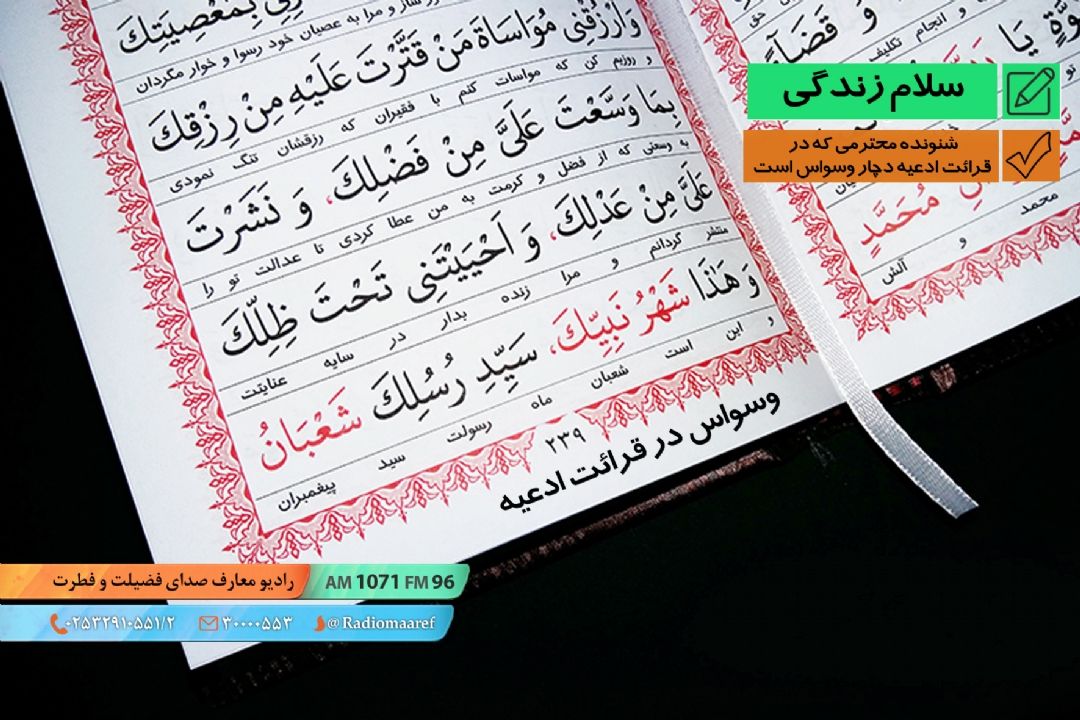 بِمَعْصِيَتِكَ
و مرا به عصیان خود رسوا و خوار مگردان
وَارْزُقْنِي مُوَاسَاةَ مَنْ قَتَّرْتَ عَلَيْهِ مِنْ رِزْقِكَ
و روزیم کن که مواسات کنم با فقیران که رزقشان تنگ نمودی
بِمَا وَسَّعْتَ عَلَيَّ مِنْ فَضْلِكَ، وَ نَشَرْتَ
به وسعتی که از فضل و کرمت به من عطا کردی تا عدالت تو را
عَلَيَّ مِنْ عَدْلِكَ، وَ اَحْيَيْتَنِي تَحْتَ ظِلِّكَ
منتشر گردانم و مرا زنده بدار در سایه عنایتت
وَ هَذَا شَهْرُ نَبِيِّكَ، سَيِّدِ رُسُلِكَ شَعْبَانُ
و این است شعبان ماه رسولت سید پیغمبران
۲۳۹
وسواس در قرائت ادعیه
وَ قَضَآءً
و انجام تکلیف
مُحَمَّدٍ
محمد و آلش
سلام زندگی
شنونده محترمی که در
قرائت ادعیه دچار وسواس است
رادیو معارف صدای فضیلت و فطرت
AM 1071 FM 96
۰۲۵۳۲۹۱۰۵۵۱/۲
۳۰۰۰۰۵۵۳
@Radiomaaref